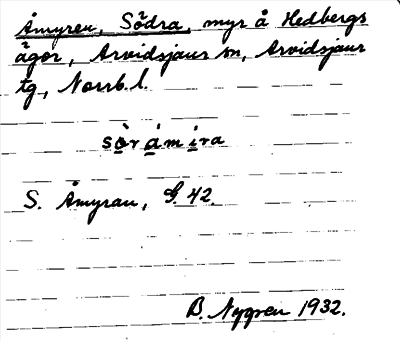 Åmyren, Södra, myr å Hedbergs
ägor, Arvidsjaur sn, Arvidsjaur
tg, Norrb. l.
sòrámira
S. Åmyran, G. 42.
B. Nygren 1932.